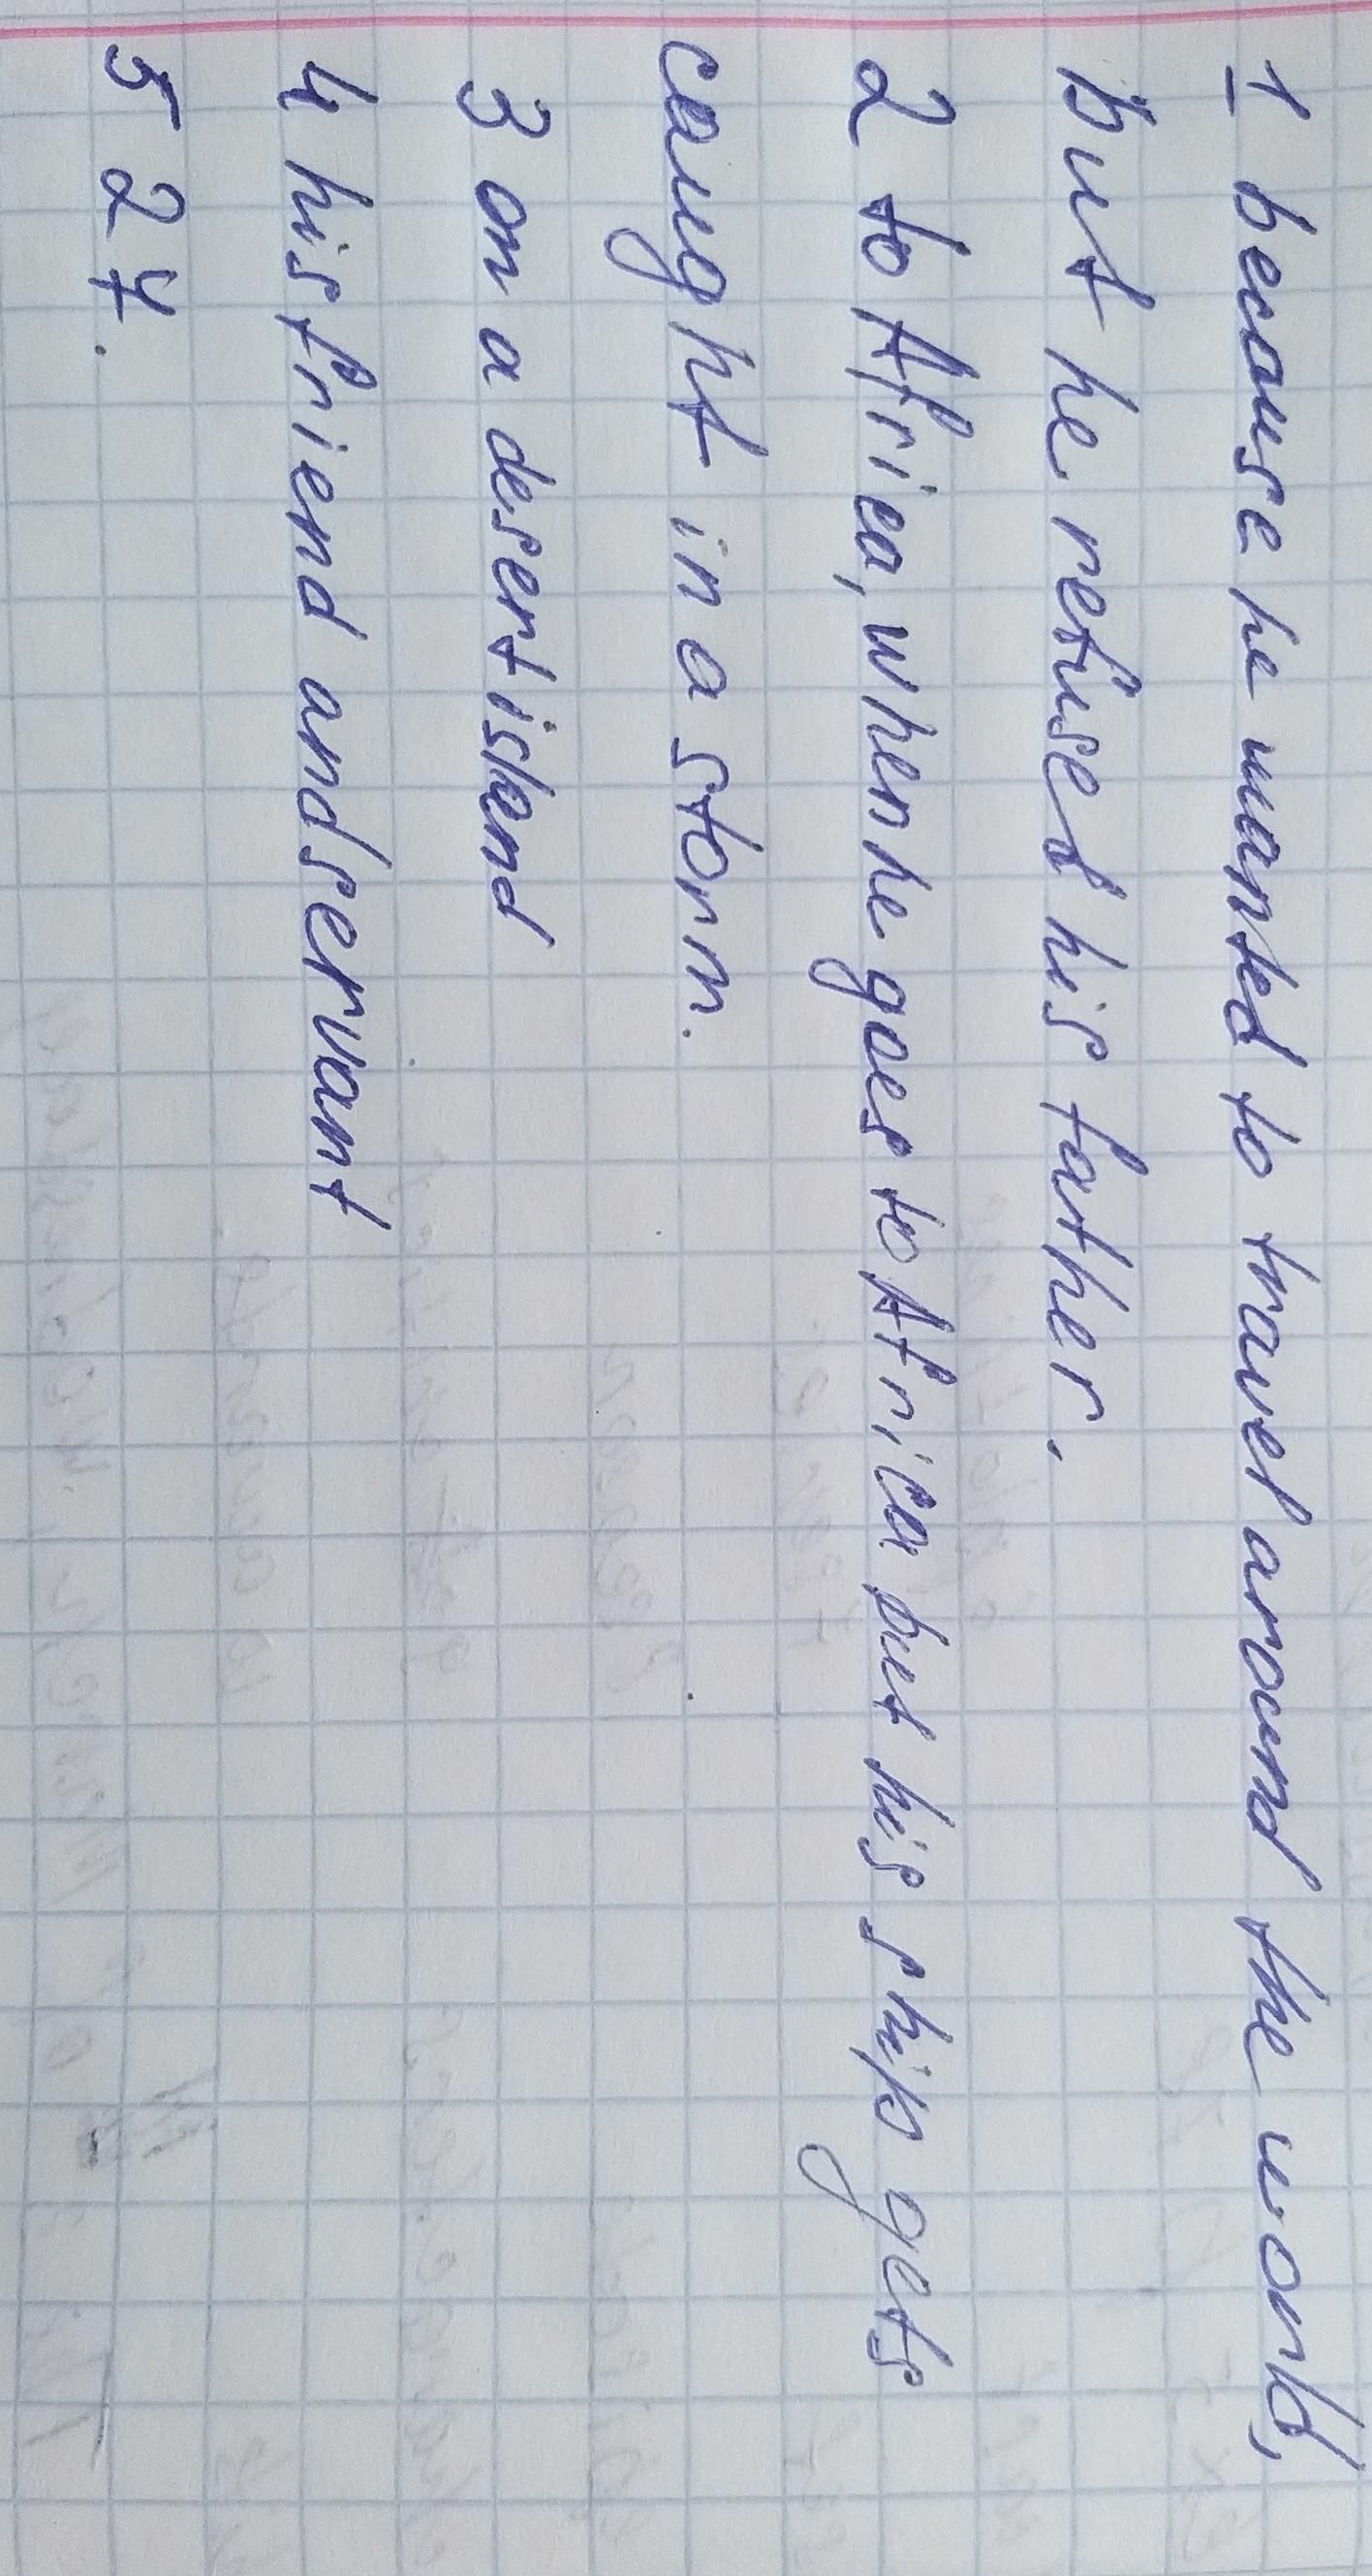 1 because he wanted to travel around the world,
but he refused his father.
2 to Africa, when he goes to Africa but his ship gets
caught in a storm.
3 on a desert island
4 his friend and servant
5 27.